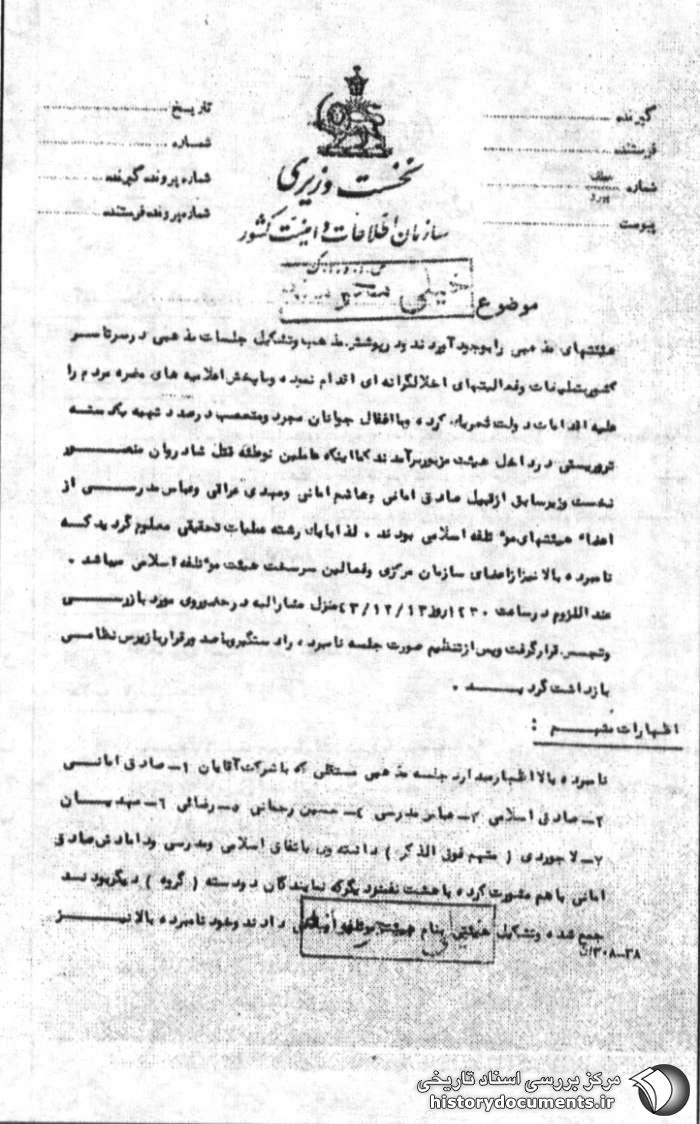 گیرنده
فرستنده
شماره
پیوست
تاریخ
شماره
شماره پرونده گیرنده
شماره پرونده فرستنده
نخست وزیری
سازمان اطلاعات و امنیت کشور
خیلی
موضوع
هیئتهای مذهبی را بوجود آوردند و در پوشش مذهب و تشکیل جلسات مذهبی در سرتاسر
کشور بتبلیغات و فعالیتهای اخلالگرانه ای اقدام نموده و با پخش اعلامیه های مضره مردم را
علیه اقدامات دولت تحریک کرده و با اغفال جوانان مجرد و متعصب در صدد تهیه یکدسته
تروریستی در داخل هیئت مزبور برآمدند کما اینکه عاملین توطئه قتل شادروان منصور
نخست وزیر سابق از قبیل صادق امانی و هاشم امانی و مهدی عراقی و عباس مدرسی از
اعضاء هیئتهای موتلفه اسلامی بودند . لذا با یک رشته عملیات تحقیقی معلوم گردید که
نامبرده بالا نیز از اعضای سازمان مرکزی و فعالین سرسخت هیئت موتلفه اسلامی میباشد .
عند اللزوم در ساعت ۱۲۳۰ روز ۴۳/۱۲/۱۳ منزل مشارالیه در حضور وی مورد بازرسی
و تجسس قرار گرفت و پس از تنظیم صورت جلسه نامبرده را دستگیر و با صدور قرار بازپرس نظامی
بازداشت گردید .
اظهارات متهم :
نامبرده بالا اظهار میدارد جلسه مذهبی مستقلی که با شرکت آقایان ۱ـ صادق امانی
۲ـ صادق اسلامی ۳ـ عباس مدرسی ۴ـ حسین رحمانی ۵ـ رضائی ۶ـ مهدیان
۷ـ لاجوردی ( متهم فوق الذکر ) داشته وی باتفاق اسلامی و مدرسی و دامادش صادق
امانی با هم مشورت کرده با هشت نفر دیگر که نمایندگان دو دسته ( گروه ) دیگر بودند
جمع شده و تشکیل هیئتی بنام هیئت موتلفه دادند و خود نامبرده بالا نیز
۳۰۸-۳۸
مرکز بررسی اسناد تاریخی
historydocuments.ir